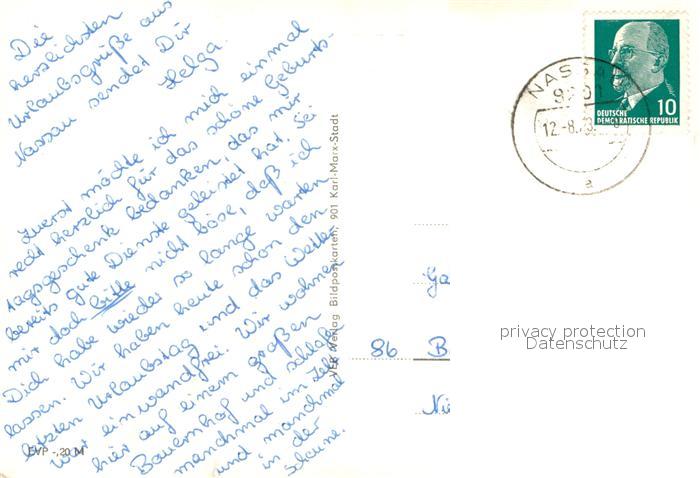 Die
herzlichsten
Urlaubsgrüße aus
Nassau sendet Dir
Helga.
Zuerst möchte ich mich einmal
recht herzlich für das schöne Geburts-
tagsgeschenk bedanken, das mir
bereits gute Dienste geleistet hat. Sei
mir doch bitte nicht böse, daß ich
Dich habe wieder so lange warten
lassen. Wir haben heute schon den
letzten Urlaubstag und das Wetter
war einwandfrei. Wir wohnen
hier auf einem großen
Bauernhof und schlafen
manchmal im Zelt
und manchmal
in der
Scheune.
EVP -,20 M
VEB Verlag Bildpostkarten, 901 Karl-Marx-Stadt
NASSAU
9201
12.-8.
a
10
DEUTSCHE
DEMOKRATISCHE REPUBLIK
Ga
86 B
Ni
privacy protection
Datenschutz